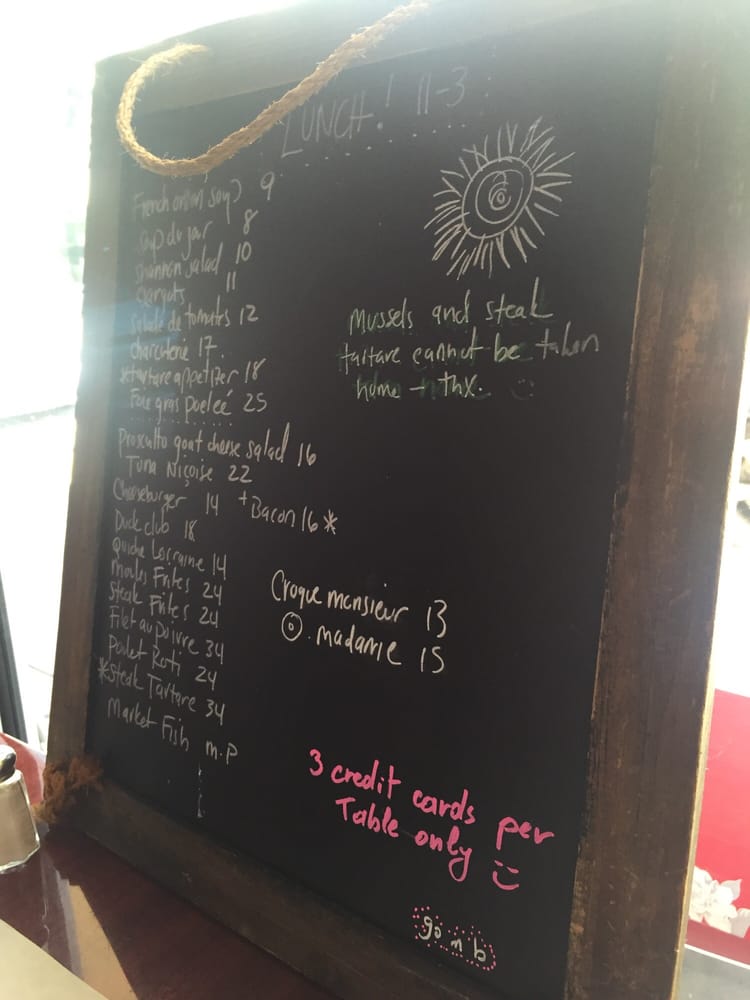 LUNCH! 11-3
French onion soup 9
soup du jour 8
shannon salad 10
escargots 11
salade de tomates 12
charcuterie 17.
tartare appetizer 18
Foie gras poeleé 25
Proscuitto goat cheese salad 16
Tuna Niçoise 22
Cheeseburger 14 + Bacon 16 *
Duck club 18
Quiche Lorraine 14
Moules Frites 24
Steak Frites 24
Filet au Poivre 34
Poulet Roti 24
*Steak Tartare 34
Market Fish m.p
Mussels and steak
tartare cannot be taken
home - thx.
Croque monsieur 13
madame 15
3 credit cards per
Table only